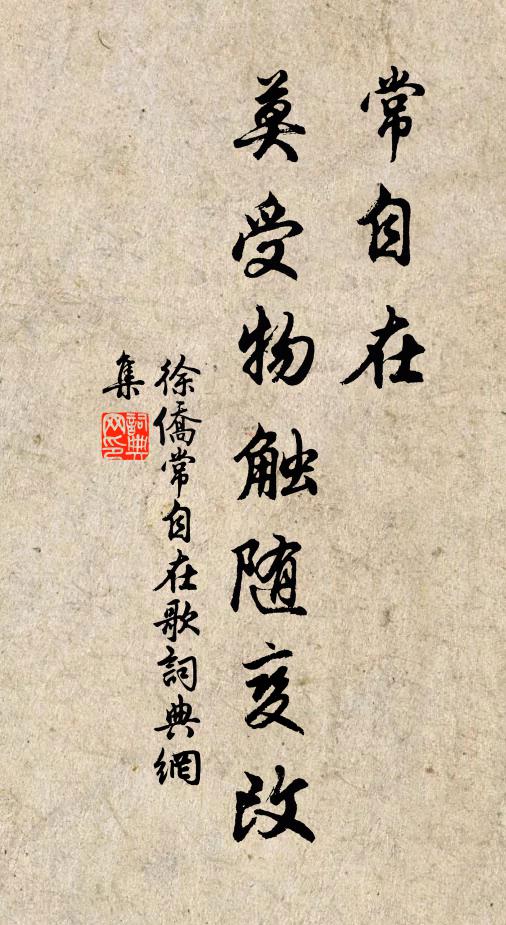 常自在
莫受物触随变改
徐僑常自在歌詞典網
集
詞典網印